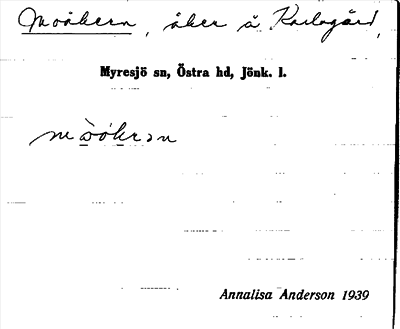 Moåkern, åker å Karlsgård,
Myresjö sn, Östra hd, Jönk. l.
Annalisa Anderson 1939